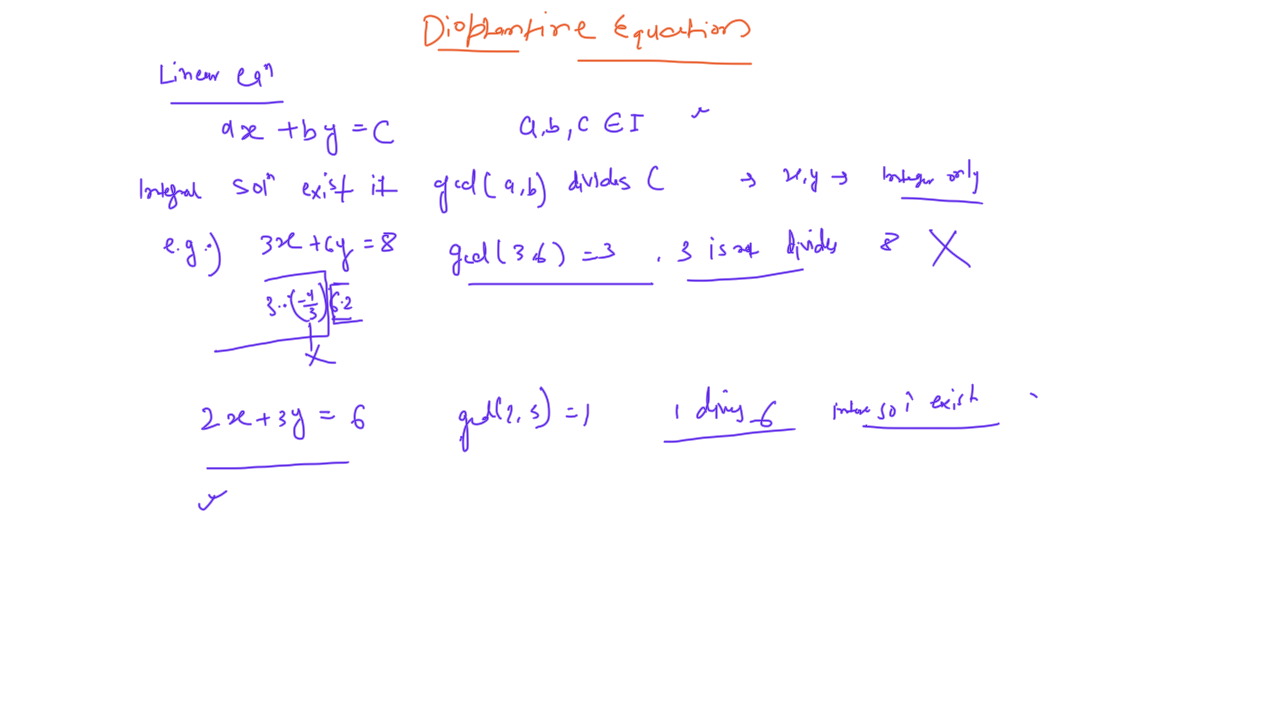 Diophantine Equations
Linear eqⁿ
ax + by = C a, b, c ∈ I
Integral solⁿ exist if gcd(a, b) divides C → x, y → Integer only
e.g.) 3x + 6y = 8 gcd(3 6) = 3 . 3 is not divides 8 X
3·(-4/3) 6·2
X
2x + 3y = 6 gcd(2, 3) = 1 1 divis 6 exist